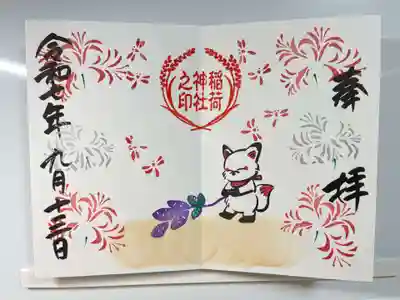 奉拝
稲荷
神社
之印
令和七年 九月十三日